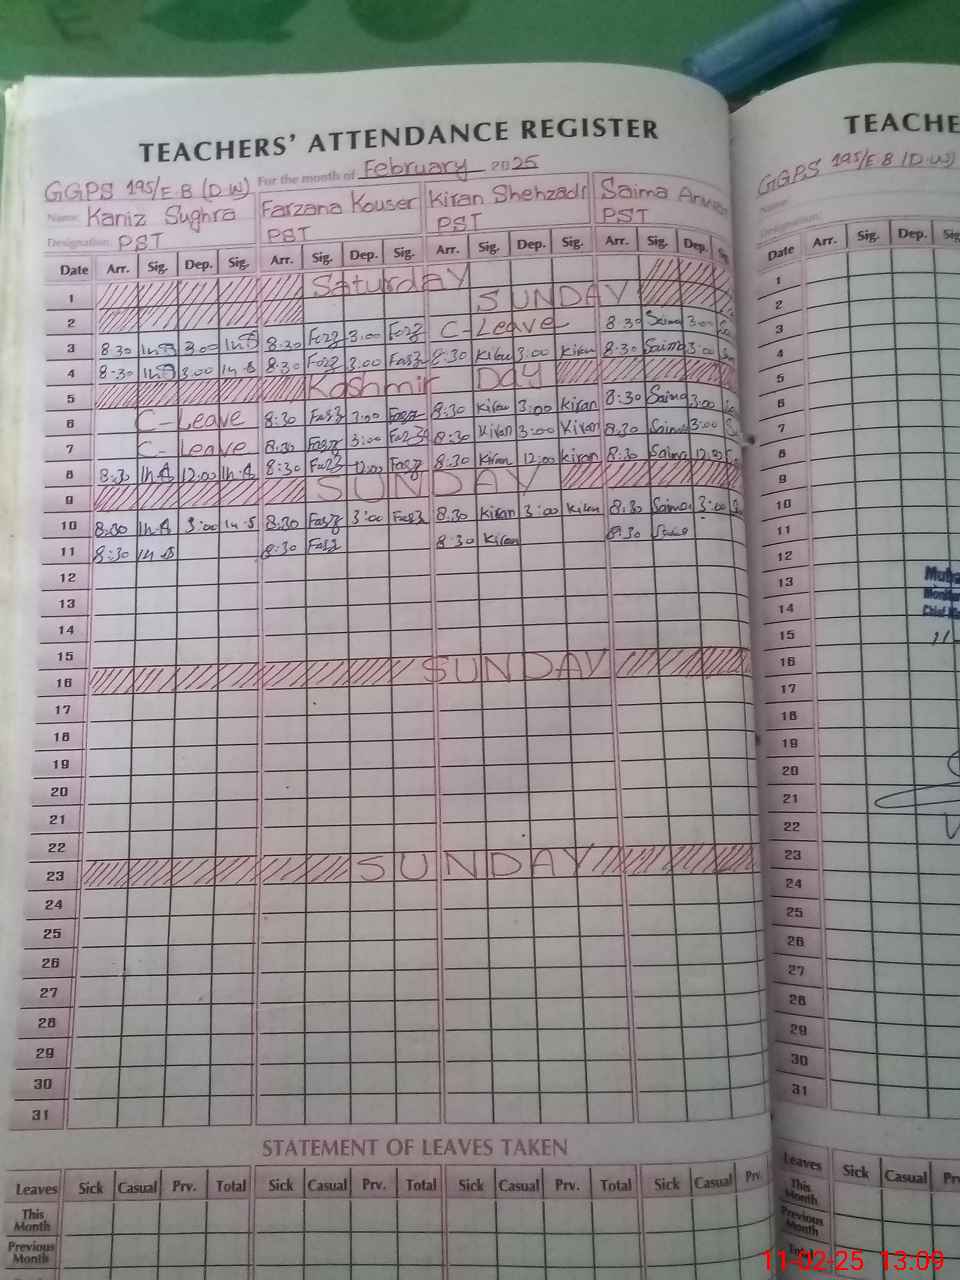 TEACHERS' ATTENDANCE REGISTER
GGPS 195/E.B (D.W) For the month of February 2025
Name: Kaniz Sughra Farzana Kouser Kiran Shehzadi Saima
Designation: PST PST PST PST
Date Arr. Sig. Dep. Sig. Arr. Sig. Dep. Sig. Arr. Sig. Dep. Sig. Arr. Sig. Dep.
1 Saturday
2 SUNDAY
3 8:30 3:00 8:30 3:00 C-Leave 8:30 Saima 3:00
4 8:30 3:00 8:30 3:00 8:30 Kiran 3:00 Kiran 8:30 Saima 3:00
5 Kashmir Day
6 C-Leave 8:30 3:00 8:30 Kiran 3:00 Kiran 8:30 Saima 3:00
7 C-Leave 8:30 3:00 8:30 Kiran 3:00 Kiran 8:30 Saima 3:00
8 8:30 12:00 8:30 12:00 8:30 Kiran 12:00 Kiran 8:30 Saima 12:00
9 SUNDAY
10 8:30 3:00 8:30 3:00 8:30 Kiran 3:00 Kiran 8:30 Saima 3:00
11 8:30 8:30 8:30 Kiran 8:30
12
13
14
15
16 SUNDAY
17
18
19
20
21
22
23 SUNDAY
24
25
26
27
28
29
30
31
STATEMENT OF LEAVES TAKEN
Leaves Sick Casual Prv. Total Sick Casual Prv. Total Sick Casual Prv. Total Sick Casual Prv.
This Month
Previous Month
GGPS 195/E.B (D.W)
Name:
Designation:
Date Arr. Sig. Dep.
1
2
3
4
5
6
7
8
9
10
11
12
13
14
15
16
17
18
19
20
21
22
23
24
25
26
27
28
29
30
31
Leaves Sick Casual
This Month
Previous Month
11-02-25 13:09